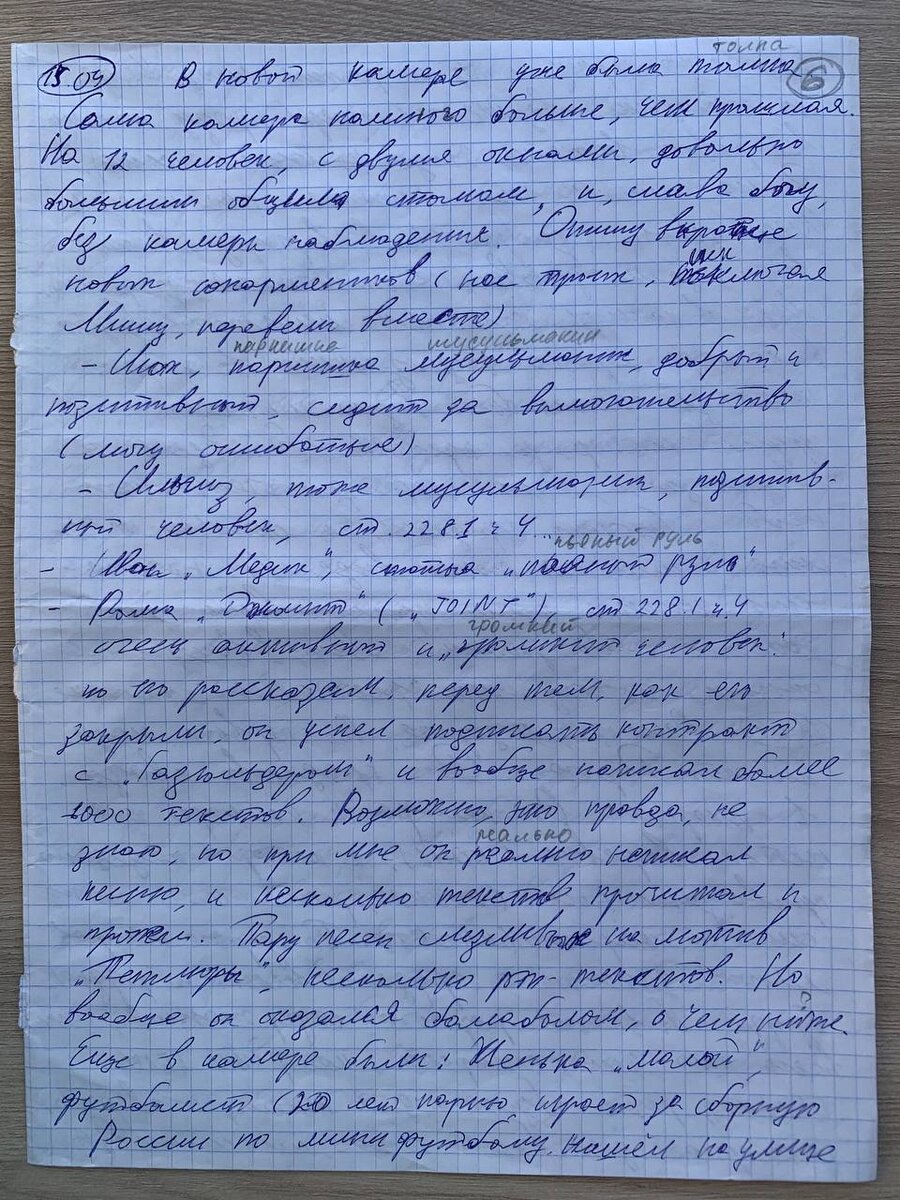 толпа
15.04 В новой камере уже была толпа. 6
Сама камера намного больше, чем прошлая.
На 12 человек, с двумя окнами, довольно
большим общим столом, и, слава богу,
без камеры наблюдения. Опишу вкратце
новых сокамерников (нас троих, включая
Мишу, перевели вместе)
парнишка мусульманин
- парнишка мусульманин, добрый и
позитивный, сидит за вымогательство
(могу ошибаться)
- Ильгиз, тоже мусульманин, позитив-
ный человек, ст. 228.1 ч 4
пьяный руль
- "Медик", статья "пьяный руль"
- Рома "Джоинт" ("JOINT"), ст 228.1 ч.4
громкий
очень активный и "громкий человек".
по его рассказам, перед тем, как его
закрыли, он успел подписать контракт
с "Газгольдером" и вообще написал более
1000 текстов. Возможно, это правда, не
реально
знаю, но при мне он реально написал
песню, и несколько текстов прочитал и
пропел. Пару песен слезливых на мотив
"Петлюры", несколько рэп-текстов. Но
вообще он оказался балаболом, о чем ниже.
Еще в камере были: Женька "малой",
футболист (20 лет парню, играет за сборную
России по мини футболу. нашёл на улице